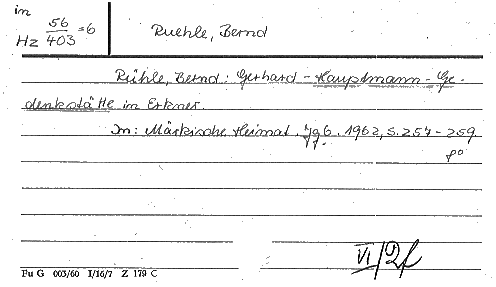 in
Hz 56/403 = 6
Ruehle, Bernd
Rühle, Bernd: Gerhard-Hauptmann-Ge-
denkstätte in Erkner.
In: Märkische Heimat. Jg 6. 1962, S. 257-259
po
VI/2f
Fu G 003/60 I/16/7 Z 179 C